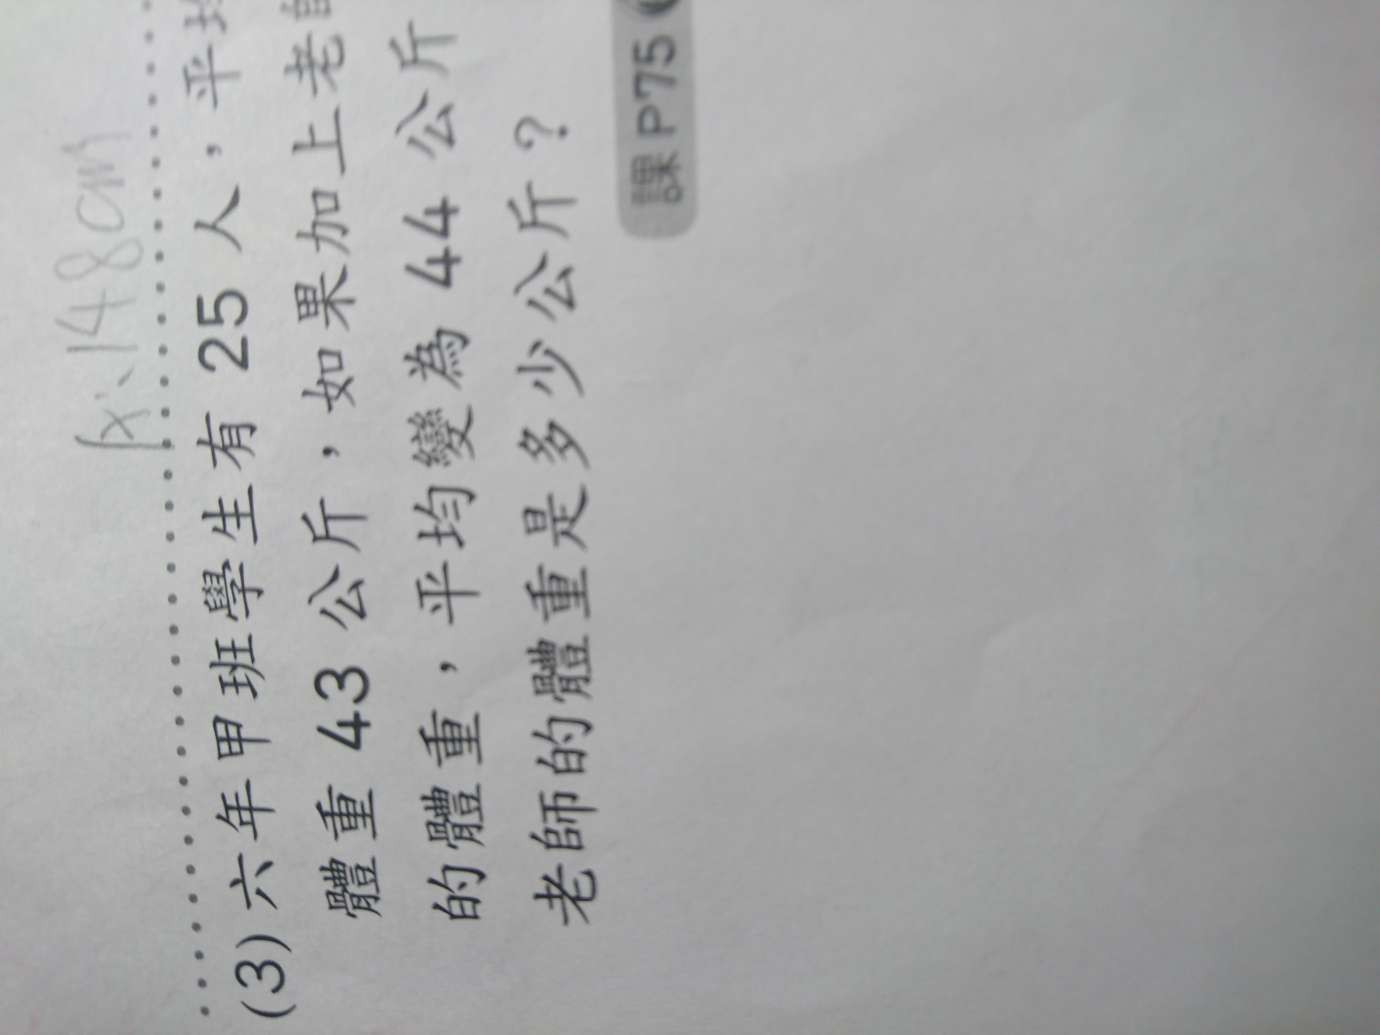 148cm
(3) 六年甲班學生有 25 人，平均
體重 43 公斤，如果加上老師
的體重，平均變為 44 公斤
老師的體重是多少公斤？
課 P75